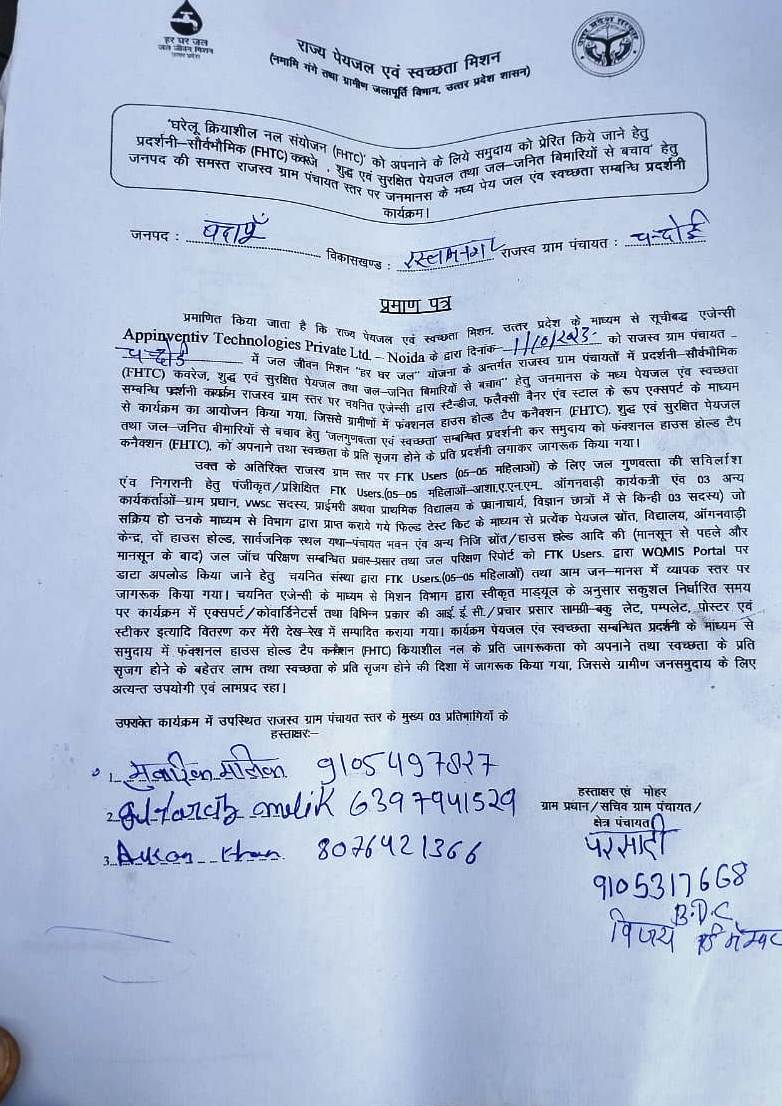 हर घर जल
जल जीवन मिशन
उत्तर प्रदेश
राज्य पेयजल एवं स्वच्छता मिशन
(नमामि गंगे तथा ग्रामीण जलापूर्ति विभाग, उत्तर प्रदेश शासन)
'घरेलू क्रियाशील नल संयोजन (FHTC)' को अपनाने के लिये समुदाय को प्रेरित किये जाने हेतु
प्रदर्शनी–सौर्वभौमिक (FHTC) कवरेज , शुद्ध एवं सुरक्षित पेयजल तथा जल–जनित बिमारियों से बचाव' हेतु
जनपद की समस्त राजस्व ग्राम पंचायत स्तर पर जनमानस के मध्य पेय जल एंव स्वच्छता सम्बन्धि प्रदर्शनी
कार्यक्रम।
जनपद : बदायूँ विकासखण्ड : राजस्व ग्राम पंचायत : चन्दोई
प्रमाण पत्र
प्रमाणित किया जाता है कि राज्य पेयजल एवं स्वच्छता मिशन, उत्तर प्रदेश के माध्यम से सूचीबद्ध एजेन्सी
Appinventiv Technologies Private Ltd. – Noida के द्वारा दिनांक 1/10/2023 को राजस्व ग्राम पंचायत –
चन्दोई में जल जीवन मिशन "हर घर जल" योजना के अन्तर्गत राजस्व ग्राम पंचायतों में प्रदर्शनी–सौर्वभौमिक
(FHTC) कवरेज, शुद्ध एवं सुरक्षित पेयजल तथा जल–जनित बिमारियों से बचाव" हेतु जनमानस के मध्य पेयजल एंव स्वच्छता
सम्बन्धि प्रर्दशनी कार्यक्रम राजस्व ग्राम स्तर पर चयनित एजेन्सी द्वारा स्टैन्डीज, फलैक्सी बैनर एंव स्टाल के रूप एक्सपर्ट के माध्यम
से कार्यक्रम का आयोजन किया गया, जिससे ग्रामीणों में फंक्शनल हाउस होल्ड टैप कनैक्शन (FHTC), शुद्ध एवं सुरक्षित पेयजल
तथा जल–जनित बीमारियों से बचाव हेतु 'जलगुणवत्ता एवं स्वच्छता' सम्बन्धित प्रदर्शनी कर समुदाय को फंक्शनल हाउस होल्ड टैप
कनैक्शन (FHTC), को अपनाने तथा स्वच्छता के प्रति सृजग होने के प्रति प्रदर्शनी लगाकर जागरूक किया गया।
उक्त के अतिरिक्त राजस्व ग्राम स्तर पर FTK Users (05–05 महिलाओं) के लिए जल गुणवत्ता की सर्विलांश
एंव निगरानी हेतु पंजीकृत/प्रशिक्षित FTK Users.(05–05 महिलाओं–आशा,ए.एन.एम. ऑगनवाड़ी कार्यकत्री एंव 03 अन्य
कार्यकर्ताओं–ग्राम प्रधान, VWSC सदस्य, प्राईमरी अथवा प्राथमिक विद्यालय के प्रधानाचार्य, विज्ञान छात्रों में से किन्ही 03 सदस्य) जो
सक्रिय हो उनके माध्यम से विभाग द्वारा प्राप्त कराये गये फिल्ड टेस्ट किट के माध्यम से प्रत्येक पेयजल स्रोंत, विद्यालय, ऑगनवाड़ी
केन्द्र, दों हाउस होल्ड, सार्वजनिक स्थल यथा–पंचायत भवन एंव अन्य निजि स्रोंत/हाउस होल्ड आदि की (मानसून से पहले और
मानसून के बाद) जल जॉच परिक्षण सम्बन्धित प्रचार–प्रसार तथा जल परिक्षण रिपोर्ट को FTK Users. द्वारा WQMIS Portal पर
डाटा अपलोड किया जाने हेतु चयनित संस्था द्वारा FTK Users.(05–05 महिलाओं) तथा आम जन–मानस में व्यापक स्तर पर
जागरूक किया गया। चयनित एजेन्सी के माध्यम से मिशन विभाग द्वारा स्वीकृत माड्यूल के अनुसार सकुशल निर्धारित समय
पर कार्यक्रम में एक्सपर्ट/कोवार्डिनेटर्स तथा विभिन्न प्रकार की आई. ई. सी./प्रचार प्रसार सामग्री–बकु लेट, पम्पलेट, पोस्टर एवं
स्टीकर इत्यादि वितरण कर मेंरी देख–रेख में सम्पादित कराया गया। कार्यक्रम पेयजल एंव स्वच्छता सम्बन्धित प्रदर्शनी के माध्यम से
समुदाय में फंक्शनल हाउस होल्ड टैप कनैक्शन (FHTC) कियाशील नल के प्रति जागरूकता को अपनाने तथा स्वच्छता के प्रति
सृजग होने के बहेतर लाभ तथा स्वच्छता के प्रति सृजग होने की दिशा में जागरूक किया गया, जिससे ग्रामीण जनसमुदाय के लिए
अत्यन्त उपयोगी एवं लाभप्रद रहा।
उपरोक्त कार्यक्रम में उपस्थित राजस्व ग्राम पंचायत स्तर के मुख्य 03 प्रतिभागियों के
हस्ताक्षर:–
1. मुबारिक मलिक 9105497827
2. melik 6397941529
3. khan 8076421366
हस्ताक्षर एवं मोहर
ग्राम प्रधान/सचिव ग्राम पंचायत/
क्षेत्र पंचायत
परसादी
9105317668
B.D.C
विजय